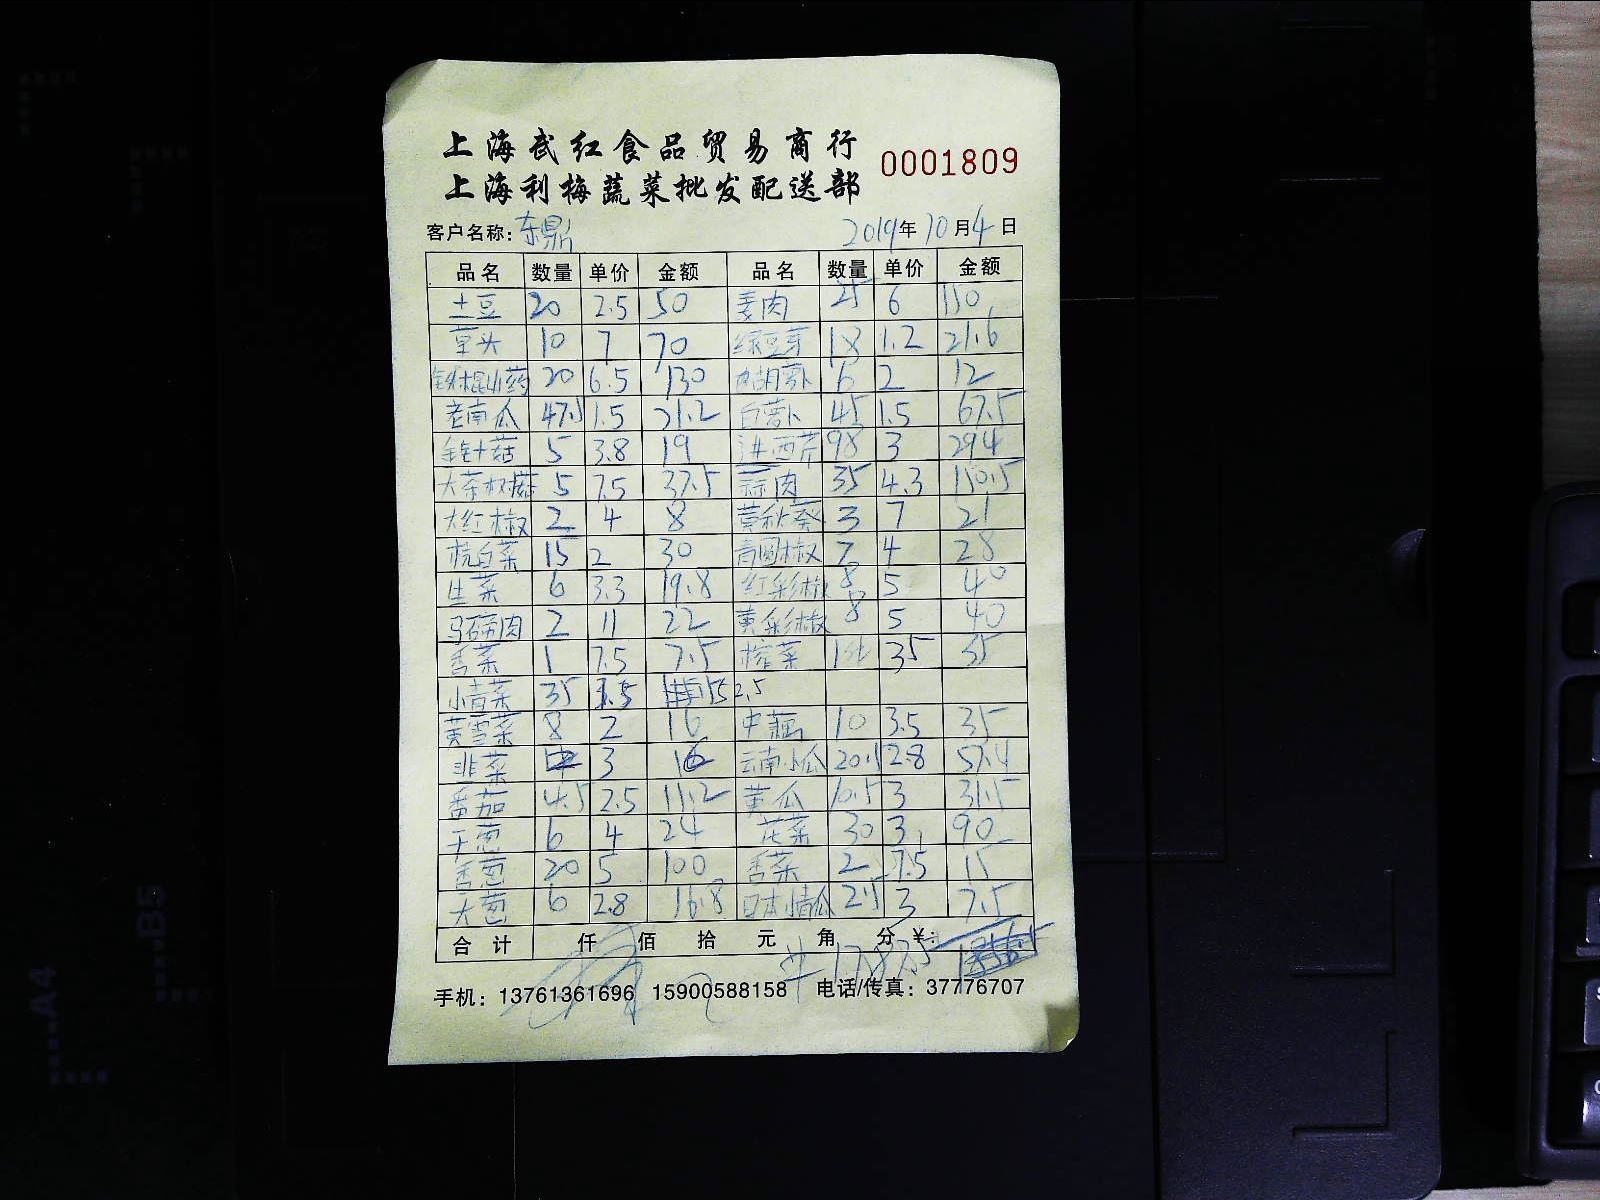 上海武红食品贸易商行
上海利梅蔬菜批发配送部
0001809
客户名称：东鼎 2019年10月4日
品名 数量 单价 金额 品名 数量 单价 金额
土豆 20 2.5 50 姜肉 25 6 150
草头 10 7 70 绿豆芽 18 1.2 21.6
铁棍山药 20 6.5 130 胡萝卜 6 2 12
老南瓜 47.5 1.5 71.2 白萝卜 45 1.5 67.5
金针菇 5 3.8 19 洋西芹 98 3 294
大茶树菇 5 7.5 37.5 蒜肉 35 4.3 150.5
大红椒 2 4 8 黄秋葵 3 7 21
杭白菜 15 2 30 青圆椒 7 4 28
生菜 6 3.3 19.8 红彩椒 8 5 40
马蹄肉 2 11 22 黄彩椒 8 5 40
香菜 1 7.5 7.5 榨菜 1 35 35
小青菜 35 1.5 52.5
黄雪菜 8 2 16 中藕 10 3.5 35
韭菜 3 16 云南小瓜 20.5 2.8 57.4
番茄 4.5 2.5 11.2 黄瓜 10.5 3 31.5
干葱 6 4 24 花菜 30 3 90
香葱 20 5 100 香菜 2 7.5 15
大葱 6 2.8 16.8 日本情瓜 2.5 3 7.5
合计 仟 佰 拾 元 角 分 ¥:
手机：13761361696 15900588158 电话/传真：37776707